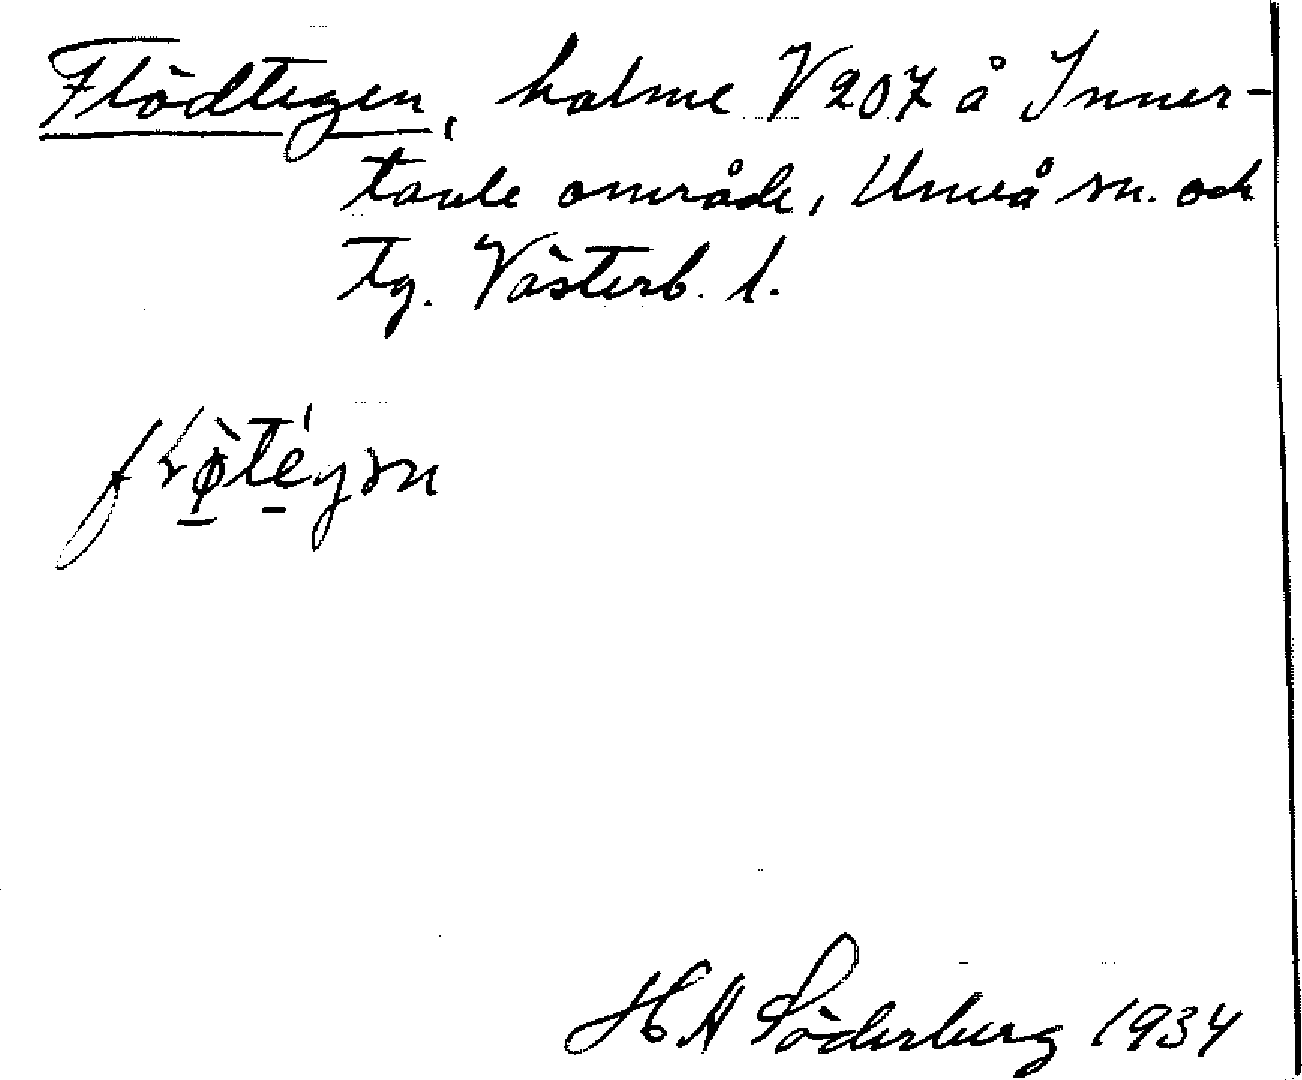 Flödtegen, holme V 207 å Inner-
tavle område, Umeå sn. och
tg. Västerb. l.
H A Söderberg 1934